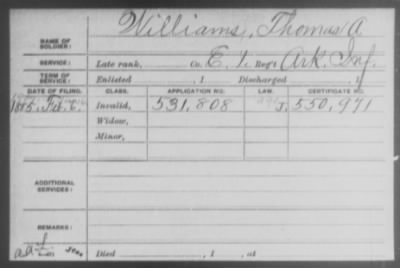 NAME OF SOLDIER: Williams, Thomas A
SERVICE: Late rank, Co. E, 1, Reg't Ark. Inf.
TERM OF SERVICE: Enlisted , 1 Discharged , 1
DATE OF FILING. CLASS. APPLICATION NO. LAW. CERTIFICATE NO.
1885, Feb. 6. Invalid, 531,808 J. 550,971
Widow,
Minor,
ADDITIONAL SERVICES:
REMARKS:
Died , 1 , at